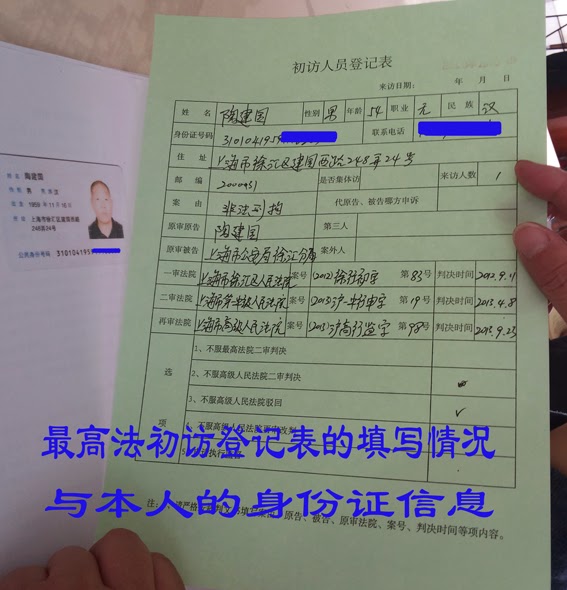 初访人员登记表
来访日期: 年 月 日
姓名 陶建国 性别 男 年龄 54 职业 无 民族 汉
身份证号码 310104195 联系电话
住址 上海市徐汇区建国西路248弄24号
邮编 2000031 是否集体访 来访人数 1
案由 非法刑拘 代原告、被告哪方申诉
原审原告 陶建国 第三人
原审被告 上海市公安局徐汇分局 案外人
一审法院 上海市徐汇区人民法院 案号 (2012)徐行初字 第83号 判决时间 2012.9.11
二审法院 上海市第一中级人民法院 案号 (2013)沪一中行申字 第19号 判决时间 2013.4.8
再审法院 上海市高级人民法院 案号 (2013)沪高行监字 第98号 判决时间 2013.9.23
选项
1、不服最高法院二审判决
2、不服高级人民法院二审判决
3、不服高级人民法院驳回 ✓
最高法初访登记表的填写情况
与本人的身份证信息
原告、被告、原审法院、案号、判决时间等项内容。
姓名 陶建国
性别 男
1959 年 11 月
上海市徐汇区建国西路
248弄24号
公民身份号码 310104195